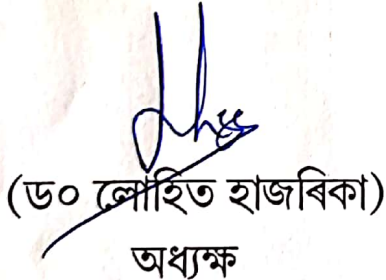 (ড০ লোহিত হাজৰিকা)
অধ্যক্ষ